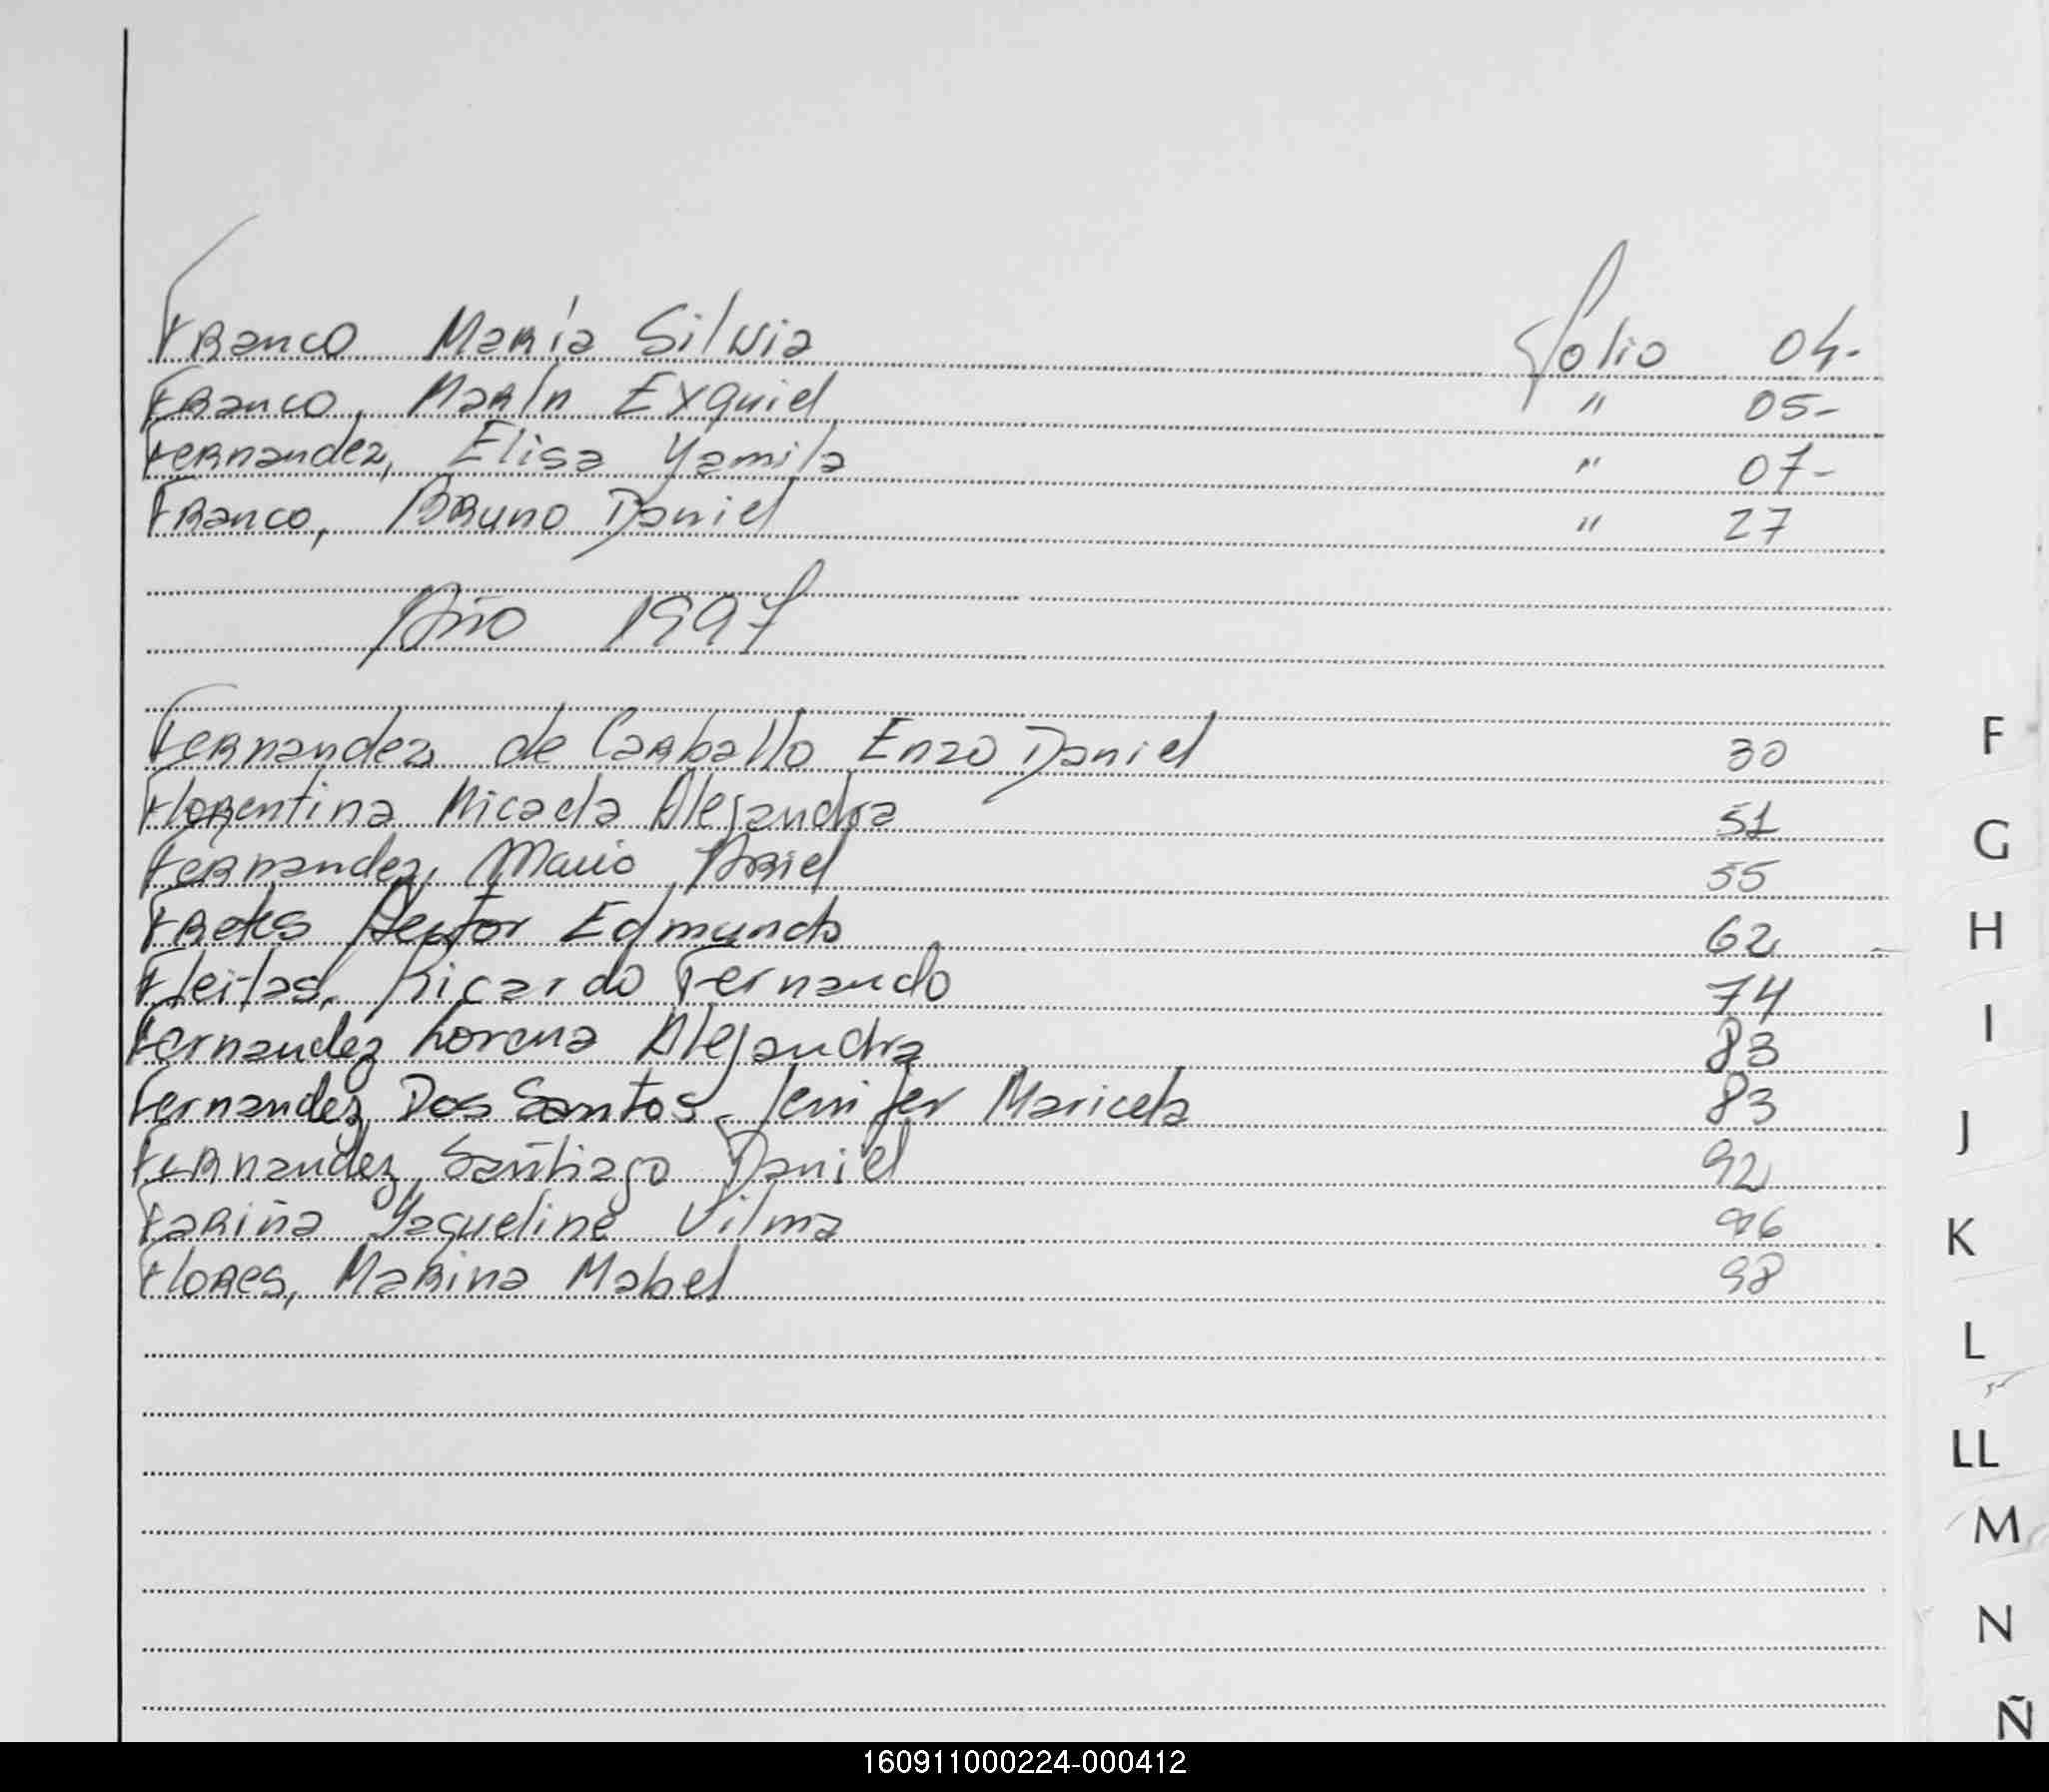 Franco María Silvia Folio 04.-
Franco, Marín Exquiel " 05-
Fernandez, Elisa Yamila " 07-
Franco, Bruno Daniel " 27
Año 1997
Fernandez de Carballo Enzo Daniel 30
Florentina Micaela Alejandra 51
Fernandez, Mario Ariel 55
Fretes Hector Edmundo 62
Fleitas, Ricardo Fernando 74
Fernandez Lorena Alejandra 83
Fernandez Dos Santos, Jenifer Maricela 83
Fernandez, Santiago Daniel 92
Fariña Yaqueline Vilma 96
Flores, Marina Mabel 98
F
G
H
I
J
K
L
LL
M
N
Ñ
160911000224-000412